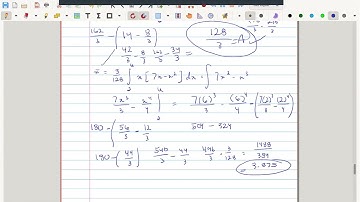 162/3 - (14 - 8/3)
128/3 = A
42/3 - 8/3
= 3/128 ∫ x[7x-x²]dx · ∫ 7x² - x³
7x³/3 - x⁴/4 ] = 7(6)³/3 - (6)⁴/4 - [7(2)³/3 - (2)⁴/4]
180 - (56/3 - 12/3
504 - 324
180 - (44/3) 540/3 - 44/3 496/3 · 3/128 = 1488/384
= 3.875